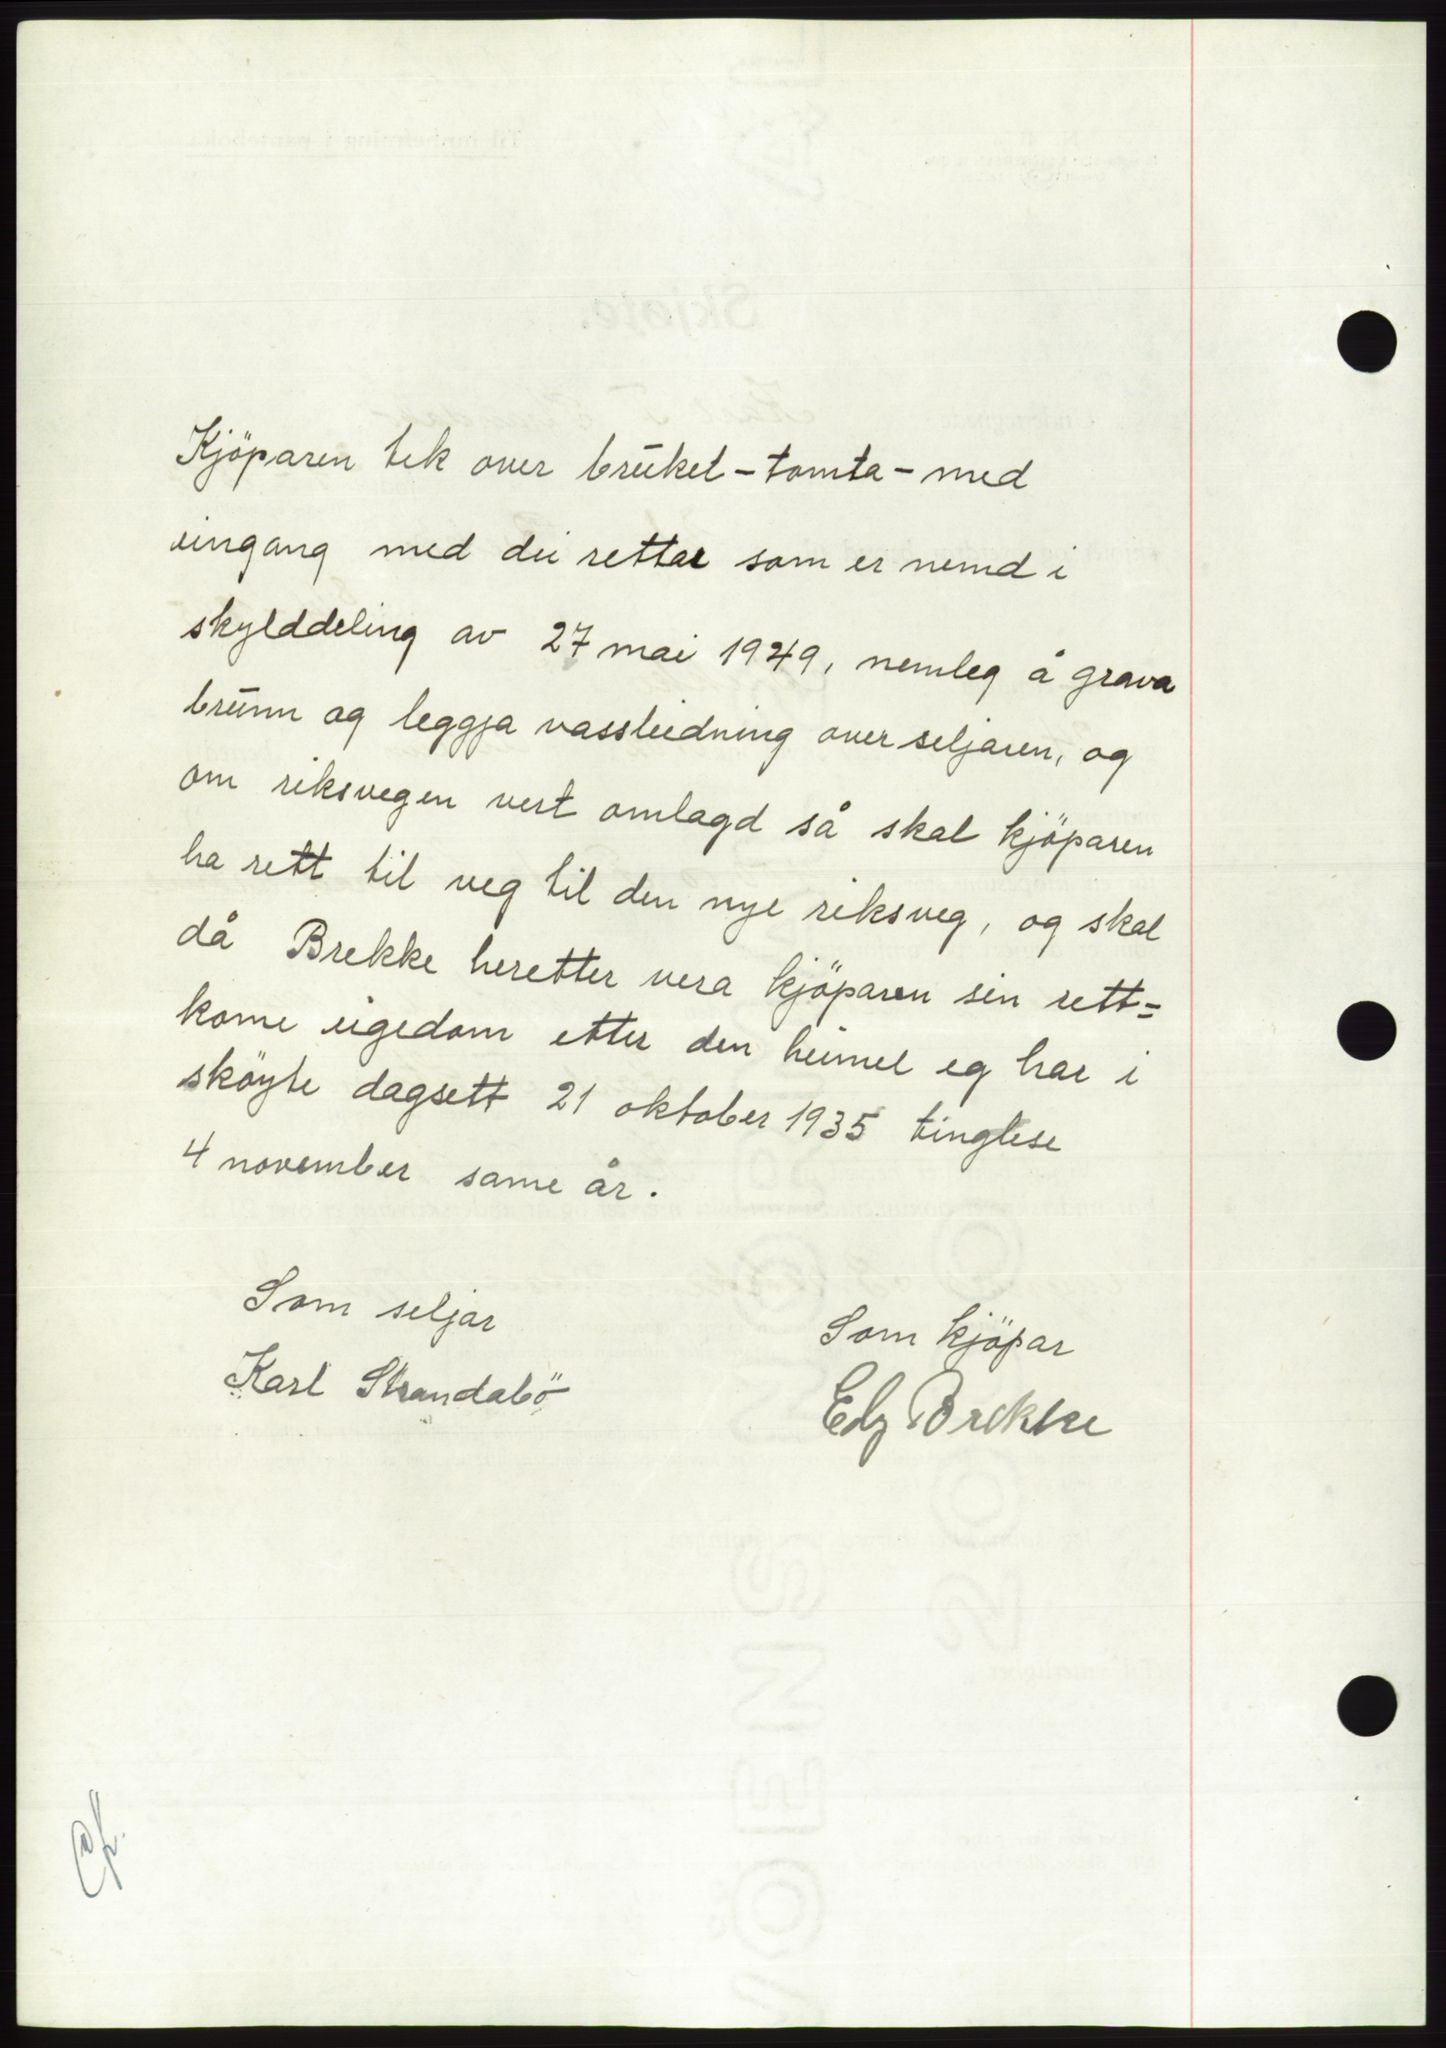 Kjöparen tek over brūket - tomta - med
eingang med dei rettar som er nemd i
skylddeling av 27 mai 1949, nemleg å grava
brūnn og leggja vassleidning over seljaren, og
om riksvegen vert omlagd så skal kjöparen
ha rett til veg til den nye riksveg, og skal
då Brekke heretter vera kjöparen sin rett=
kome eigedom etter den heimel eg har i
sköyte dagsett 21 oktober 1935 tinglese
4 november same år.
Som seljar
Karl Strandabö
Som kjöpar
Brekke